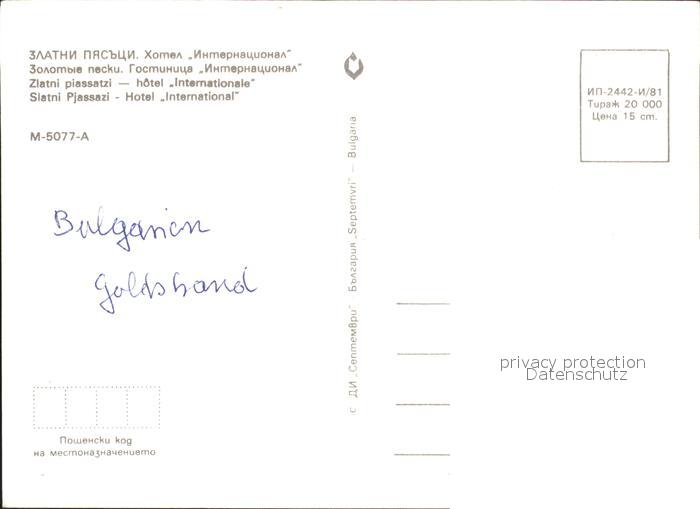 ЗЛАТНИ ПЯСЪЦИ. Хотел „Интернационал“
Золотые пески. Гостиница „Интернационал“
Zlatni piassatzi — hôtel „Internationale“
Slatni Pjassazi - Hotel „International“
М-5077-А
Bulgarien
Goldstrand
Пощенски код
на местоназначението
© ДИ „Септември“ България „Septemvri“ — Bulgaria
ИП-2442-И/81
Тираж 20 000
Цена 15 ст.
privacy protection
Datenschutz